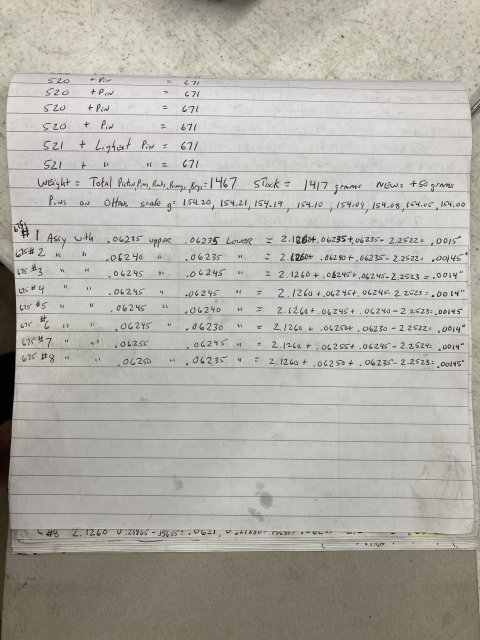 520 + Pin = 671
520 + Pin = 671
520 + Pin = 671
520 + Pin = 671
521 + Lightest Pin = 671
521 + " " = 671
Weight = Total Piston, Pins, Rods, Rings, = 1467 Stock = 1417 grams New = +50 grams
Pins on OHaus scale g = 154.20, 154.21, 154.19, 154.10, 154.09, 154.08, 154.05, 154.00
#1 Assy with .06235 upper .06235 Lower = 2.1260+.06235+.06235- 2.2522= .0015"
675 #2 " " .06240 " .06235 " = 2.1260+ .06240+.06235- 2.2522= .00145"
675 #3 " " .06245 " .06245 " = 2.1260+.06245+.06245- 2.2523 = .0014"
675 #4 " " .06245 " .06245 " = 2.1260 + .06245+ .06245- 2.2523 = .0014"
675 #5 " " .06245 " .06240 " = 2.1260+.06245+ .06240- 2.2523= .00145
675 #6 " " .06245 " .06230 " = 2.1260 + .06250+ .06230- 2.2522= .0014"
675 #7 " " .06255 .06245 " = 2.1260 + .06255+ .06245- 2.2524= .0014"
675 #8 " " .06250 " .06235 " = 2.1260 + .06250 + .06235- 2.2523= .00145"
#8 2.1260